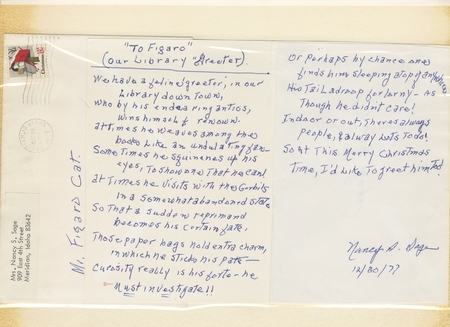 "To Figaro"
(our Library "Greeter)
We have a feline greeter, in our
Library down town,
Who by his endearing antics,
Wins himself renown.
at times he weaves among the
books Like an undulating
Some times he squinches up his
eyes, To show one That he can!
at Times he visits with the Gerbils
In a somewhat abandoned state
So That a sudden reprimand
becomes his certain fate.
Those paper bags hold extra charm,
in which he sticks his pate—
Curiosity really is his forte - he
Must investigate!!
Or perhaps by chance one
finds him sleeping atop
His Tail adroop forlornly - as
Though he didn't care!
Indoor or out, There's always
people, & always Lots To do!
So at This Merry Christmas
Time, I'd Like to greet him Too!
Nancy S. Sage
12/20/77
Mr. Figaro Cat.
Mrs. Nancy S. Sage
909 East 4th Street
Meridian, Idaho 83642